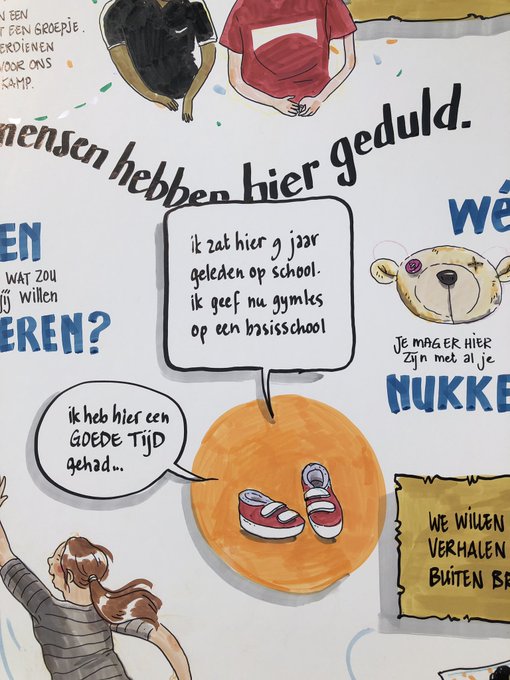 N EEN
T EEN GROEPJE.
ERDIENEN
VOOR ONS
KAMP.
mensen hebben hier geduld.
EN
WAT ZOU
JIJ Willen
EREN?
ik zat hier 9 jaar
geleden op school.
ik geef nu gymles
op een basisschool
WÉ
JE MAG ER HIER
Zijn met al je
NUKKE
ik heb hier een
GOEDE TIJD
gehad...
WE WILLEN
VERHALEN
BUITEN BR